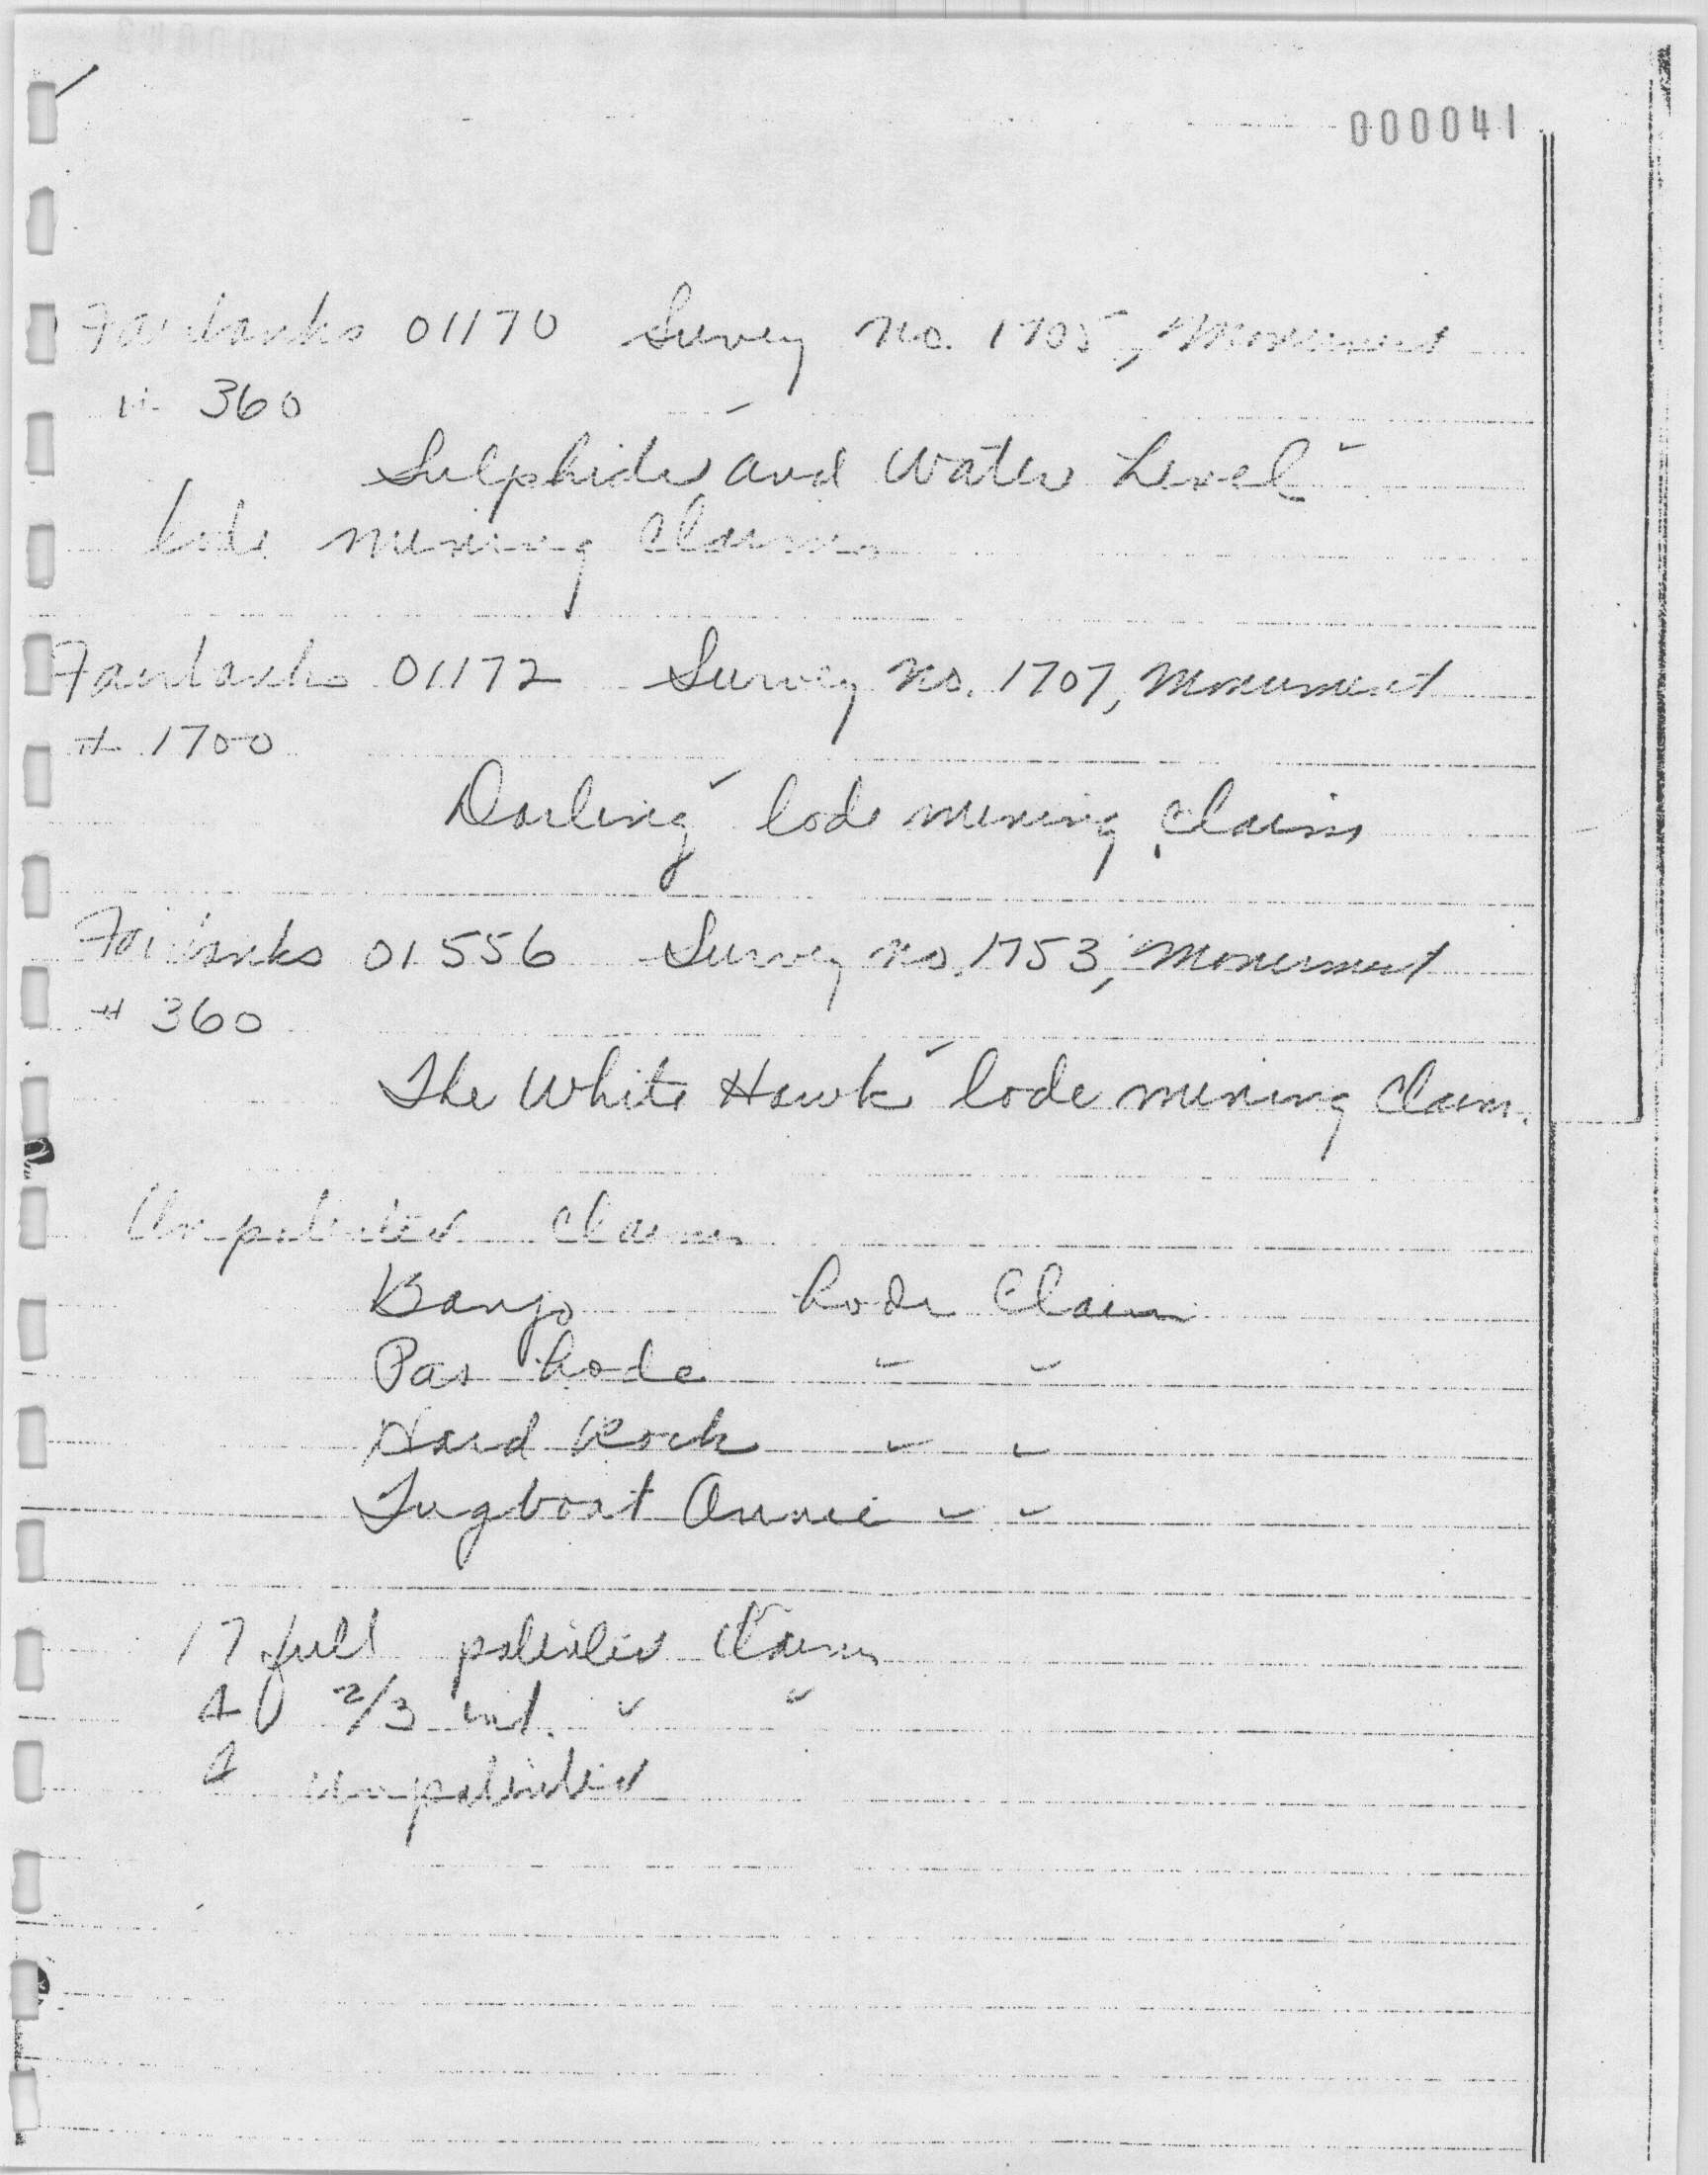 000041
Fairbanks 01170 Survey No. 1705, Monument
# 360
Sulphide and Water Level
lode mining claims
Fairbanks 01172 Survey No. 1707, Monument
# 1700
Darling lode mining claim
Fairbanks 01556 Survey No. 1753, Monument
# 360
The White Hawk lode mining claim.
Unpatented Claims
Banjo Lode Claim
Pas Lode " "
Hard Rock " "
Tugboat Annie " "
17 full patented claims
4 2/3 int. " "
4 unpatented